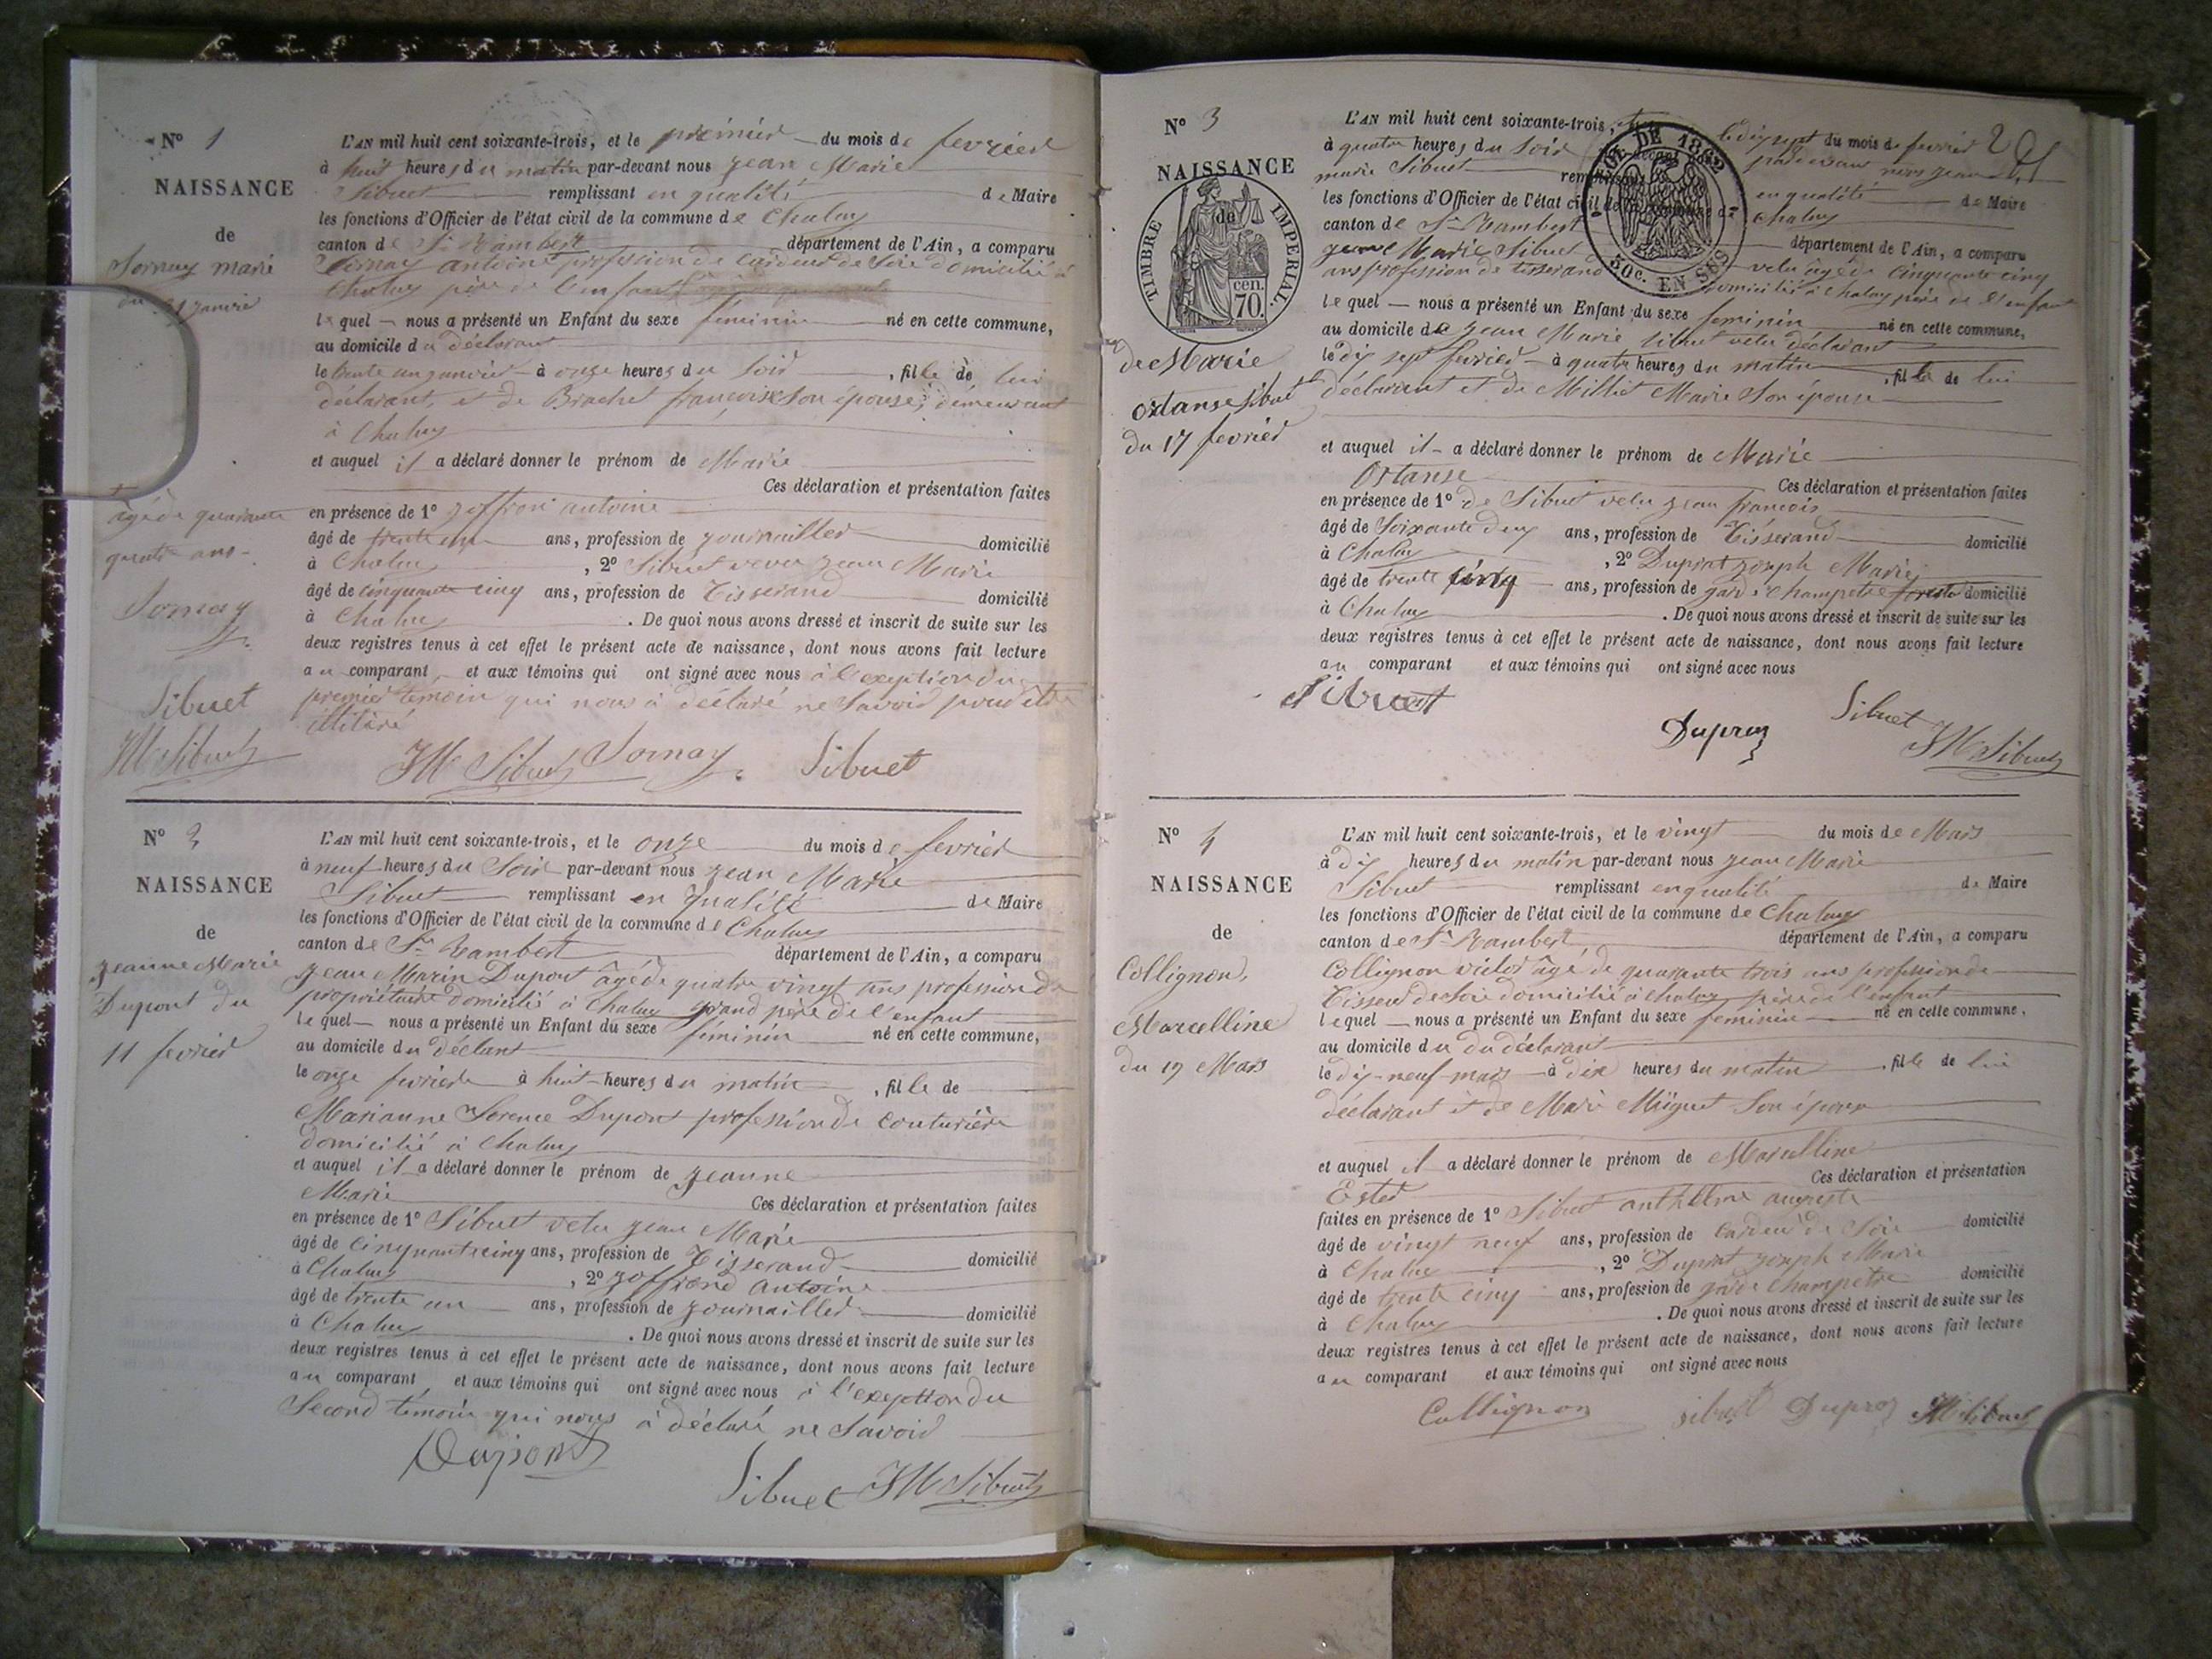 N° 1
NAISSANCE
de
Sornay marie
du 31 janvié
L'AN mil huit cent soixante-trois, et le premier du mois de fevrier
à huit heures du matin par-devant nous jean Marie
Sibuet remplissant en qualité de Maire
les fonctions d'Officier de l'état civil de la commune de Chaley
canton de St Rambert département de l'Ain, a comparu
Sornay antoine profession de cardeur de Soie domicilié à
Chaley père de l'enfant
lequel nous a présenté un Enfant du sexe feminin né en cette commune,
au domicile du déclarant
le trente un janvier à onze heures du soir, fille de lui
déclarant, et de Brachet françoise son épouse, demeurant
à Chaley
et auquel il a déclaré donner le prénom de Marie
Ces déclaration et présentation faites
en présence de 1° joffron antoine
âgé de trente un ans, profession de journaillier domicilié
à Chaley, 2° Sibuet jean Marie
âgé de cinquante cinq ans, profession de Tisserand domicilié
à Chaley. De quoi nous avons dressé et inscrit de suite sur les
deux registres tenus à cet effet le présent acte de naissance, dont nous avons fait lecture
au comparant et aux témoins qui ont signé avec nous à l'exeption du
premier temoin qui nous à déclaré ne Savoir pour être
illitéré
âgé de quarante
quatre ans
Sornay
Sibuet
JM Sibuet
JM Sibuet Sornay Sibuet
N° 2
NAISSANCE
de
jeanne Marie
Dupont du
11 fevrier
L'AN mil huit cent soixante-trois, et le onze du mois de fevrier
à neuf heures du Soir par-devant nous jean Marie
Sibuet remplissant en qualité de Maire
les fonctions d'Officier de l'état civil de la commune de Chaley
canton de St Rambert département de l'Ain, a comparu
jean Marin Dupont âgé de quatre vingt ans profession de
propriétaire domicilié à Chaley grand père de l'enfant
lequel nous a présenté un Enfant du sexe féminin né en cette commune,
au domicile du déclant
le onze fevrier à huit heures du matin, fille de
Marianne Serence Dupont profession de couturière
domicilié à Chaley
et auquel il a déclaré donner le prénom de jeanne
Marie Ces déclaration et présentation faites
en présence de 1° Sibuet velu jean Marie
âgé de cinquante cinq ans, profession de Tisserand domicilié
à Chaley, 2° joffrond Antoine
âgé de trente un ans, profession de journaillier domicilié
à Chaley. De quoi nous avons dressé et inscrit de suite sur les
deux registres tenus à cet effet le présent acte de naissance, dont nous avons fait lecture
au comparant et aux témoins qui ont signé avec nous à l'exeption du
Second témoin qui nous à déclaré ne Savoir
Dupont
Sibuet JM Sibuet
N° 3
NAISSANCE
de
TIMBRE IMPERIAL.
cen. 70.
de Marie
Ostanse Sibuet
du 17 fevrier
L'AN mil huit cent soixante-trois, le dix sept du mois de fevrier
à quatre heures du Soir par devant nous jean
marie Sibuet remplissant en qualité de Maire
les fonctions d'Officier de l'état civil de la commune de Chaley
canton de St Rambert département de l'Ain, a comparu
jean Marie Sibuet velu âgé de cinquante cinq
ans profession de tisserand domicilié à Chaley père de l'enfant
DE 1862
50c. EN SUS
lequel nous a présenté un Enfant du sexe feminin né en cette commune,
au domicile de jean Marie Sibuet velu déclarant
le dix sept fevrier à quatre heures du matin, fille de lui
déclarant et de Milliet Marie Son épouse
et auquel il a déclaré donner le prénom de Marie
Ostanse Ces déclaration et présentation faites
en présence de 1° de Sibuet velu jean francois
âgé de Soixante deux ans, profession de Tisserand domicilié
à Chaley, 2° Duprat joseph Marie
âgé de trente cinq ans, profession de garde champetre domicilié
à Chaley. De quoi nous avons dressé et inscrit de suite sur les
deux registres tenus à cet effet le présent acte de naissance, dont nous avons fait lecture
au comparant et aux témoins qui ont signé avec nous
Sibuet
Dupraz
Sibuet
JM Sibuet
N° 4
NAISSANCE
de
Collignon,
Marcelline
du 19 Mars
L'AN mil huit cent soixante-trois, et le vingt du mois de Mars
à dix heures du matin par-devant nous jean Marie
Sibuet remplissant en qualité de Maire
les fonctions d'Officier de l'état civil de la commune de Chaley
canton de St Rambert département de l'Ain, a comparu
Collignon victor âgé de quarante trois ans profession de
Tisseur de Soie domicilié à Chaley père de l'enfant
lequel nous a présenté un Enfant du sexe feminin né en cette commune,
au domicile du du déclarant
le dix-neuf mars à dix heures du matin, fille de lui
déclarant et de Marie Miguet Son épouse
et auquel il a déclaré donner le prénom de Marcelline
Ester Ces déclaration et présentation
faites en présence de 1° Sibuet anthelme auguste
âgé de vingt neuf ans, profession de cardeur de Soie domicilié
à Chaley, 2° Duprat joseph Marie
âgé de trente cinq ans, profession de garde champetre domicilié
à Chaley. De quoi nous avons dressé et inscrit de suite sur les
deux registres tenus à cet effet le présent acte de naissance, dont nous avons fait lecture
au comparant et aux témoins qui ont signé avec nous
Collignon Sibuet Dupraz JM Sibuet